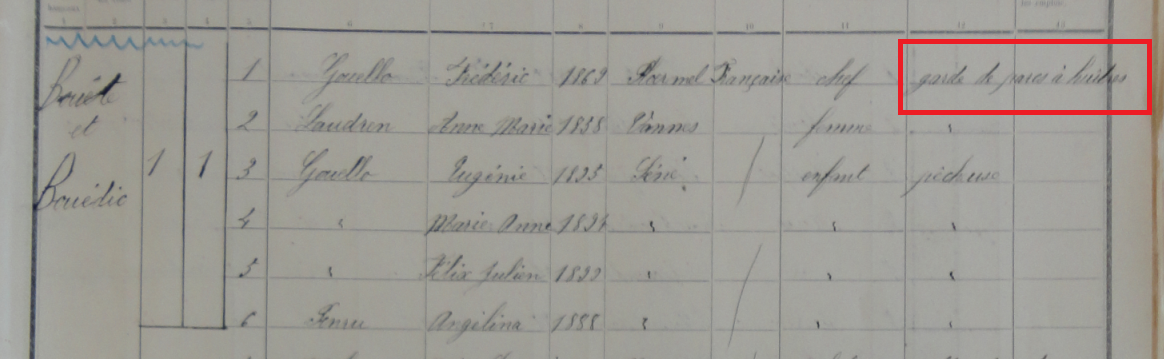 1 2 3 4 5 6 7 8 9 10 11 12 13
Bouëte 1 Gouello Frédéric 1869 Ploermel Française chef garde de parcs à huîtres
et 2 Laudren Anne Marie 1858 Vannes femme "
1 1 3 Gouello Eugénie 1895 Séné / enfant pêcheuse
Bouëdic 4 " Marie Anne 1894 " " "
5 " Félix Julien 1899 " / " "
6 Angélina 1888 " " "